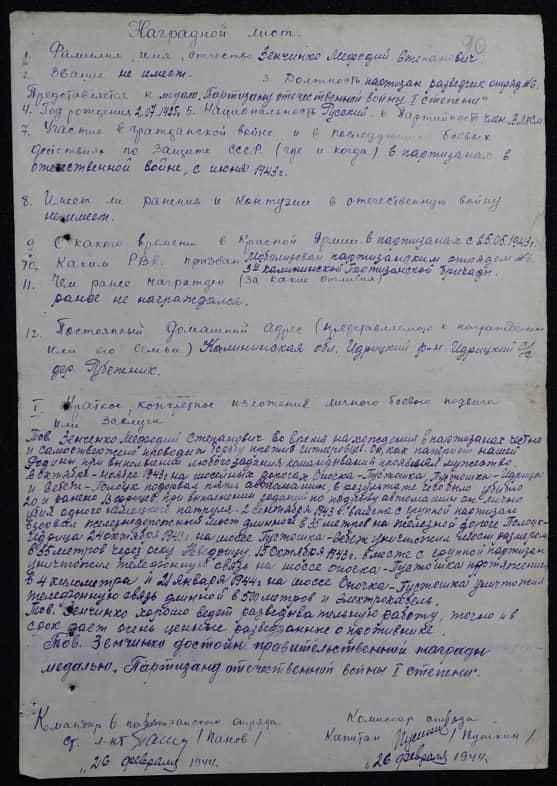 90
Наградной лист.
1. Фамилия, имя, отчество Зенчинко Мефодий Степанович
2. Звание не имеет. 3. Должность партизан разведчик отряд №6.
Представляется к медали "Партизану отечественной войны I степени"
4. Год рождения 2.07.1925, 5. Национальность Русский. 6. Партийность член ВЛКСМ
7. Участие в гражданской войне и в последующих боевых
действиях по защите СССР (где и когда) в партизанах в
отечественной войне, с июня 1943г.
8. Имеет ли ранения и контузии в отечественную войну
не имеет.
9. С какого времени в Красной Армии. в партизанах с 25.05.1943г.
10. Каким РВК призван Мобилизован партизанским отрядом №6.
3ей калининской партизанской бригады.
11. Чем ранее награжден (за какие отличия)
ранее не награждался.
12. Постоянный домашний адрес (представляемого к награждению
или его семьи) Калининская обл. Идрицкий р-н. Идрицкий с/с
дер. Рубежник.
I Краткое, конкретное изложение личного боевого подвига
или заслуги
Тов. Зенченко Мефодий Степанович во время нахождения в партизанах честно
и самоотверженно проводил борьбу против гитлеровцев. Он, как патриот нашей
Родины, при выполнении любого задания командования проявлял мужество.
В октябре-ноябре 1943г на шоссейных дорогах Опочка-Пустошка, Пустошка-Идрица
и Себеж-Полоцк подорвал пять автомашин, в результате чего было убито
20 и ранено фрицев, при выполнении заданий по подрыву автомашин он лично
убил одного немецкого патруля. 2 сентября 1943г. вместе с группой партизан
взорвал железнодорожный мост длинной в 35 метров на железной дороге Полоцк-
Идрица 24 октября 1943г. на шоссе Пустошка-Себеж уничтожил мост размером
в 35 метров через реку 15 октября 1943г. вместе с группой партизан
уничтожил телефонную связь на шоссе Опочка-Пустошка протяжением
в 4 километра, и 21 января 1944г. на шоссе Опочка-Пустошка уничтожил
телефонную связь длинной в 500 метров и электрокабель.
Тов. Зенчинко хорошо ведет разведывательную работу, точно и в
срок дает очень ценные разведданные о противнике.
Тов. Зенчинко достоин правительственной награды
медалью "Партизану отечественной войны I степени".
Командир 6 партизанского отряда
ст. л-нт /Панов/
"26 февраля 1944.
Комиссар отряда
Капитан /Пушкин/
"26 февраля 1944.